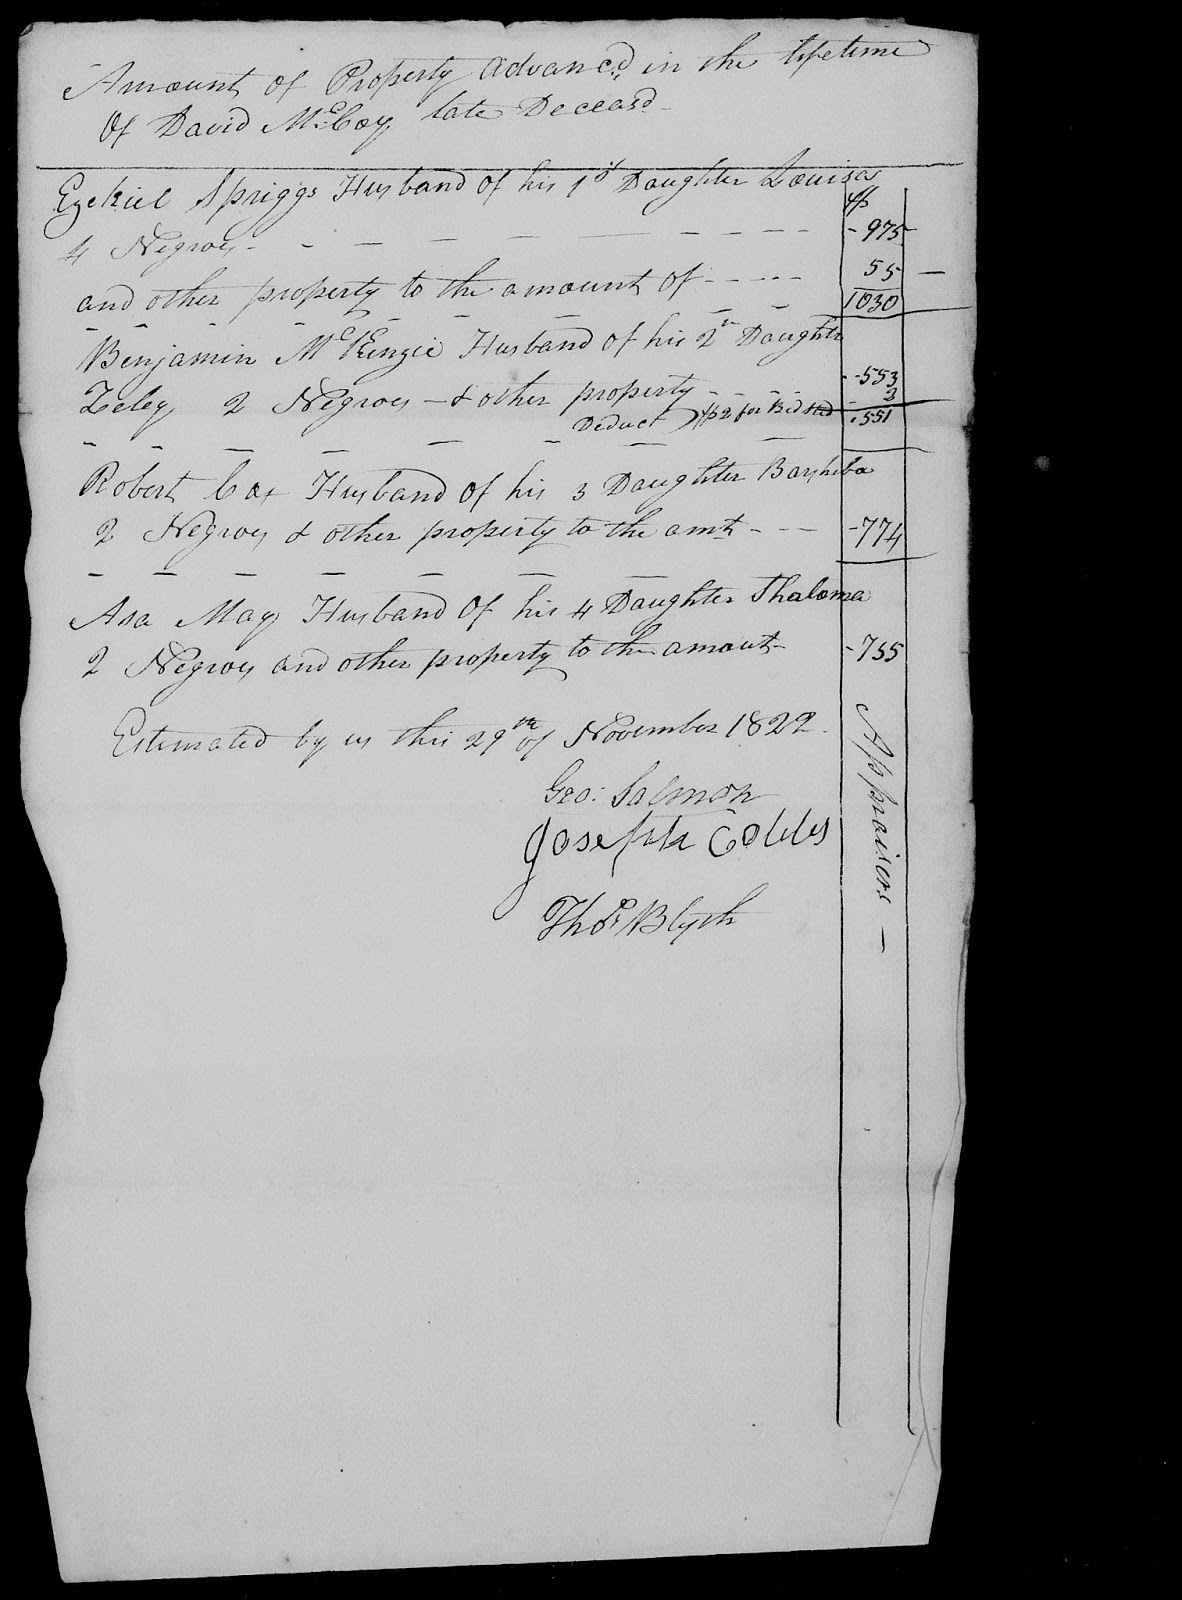 Amount of Property advanc.d in the lifetime
Of David McCoy late Deceasd
Ezekiel Spriggs Husband of his 1st Daughter Louisa
$
4 Negroes - - - - - - - - - - 975
and other property to the amount of - - - - 55 -
1030
Benjamin McKenzie Husband of his 2n Daughter
Zeley 2 Negroes - & other property - - - - 553
Deduct $2 for Bed sted - 2
551
Robert Cox Husband of his 3 Daughter Barsheba
2 Negroes & other property to the amt - - - 774
Asa May Husband Of his 4 Daughter Thaloma
2 Negroes and other property to the amout - - 755
Estimated by us this 29th of November 1822.
Geo: Salmon
Joseph
Thos Blyth
Appraisors -